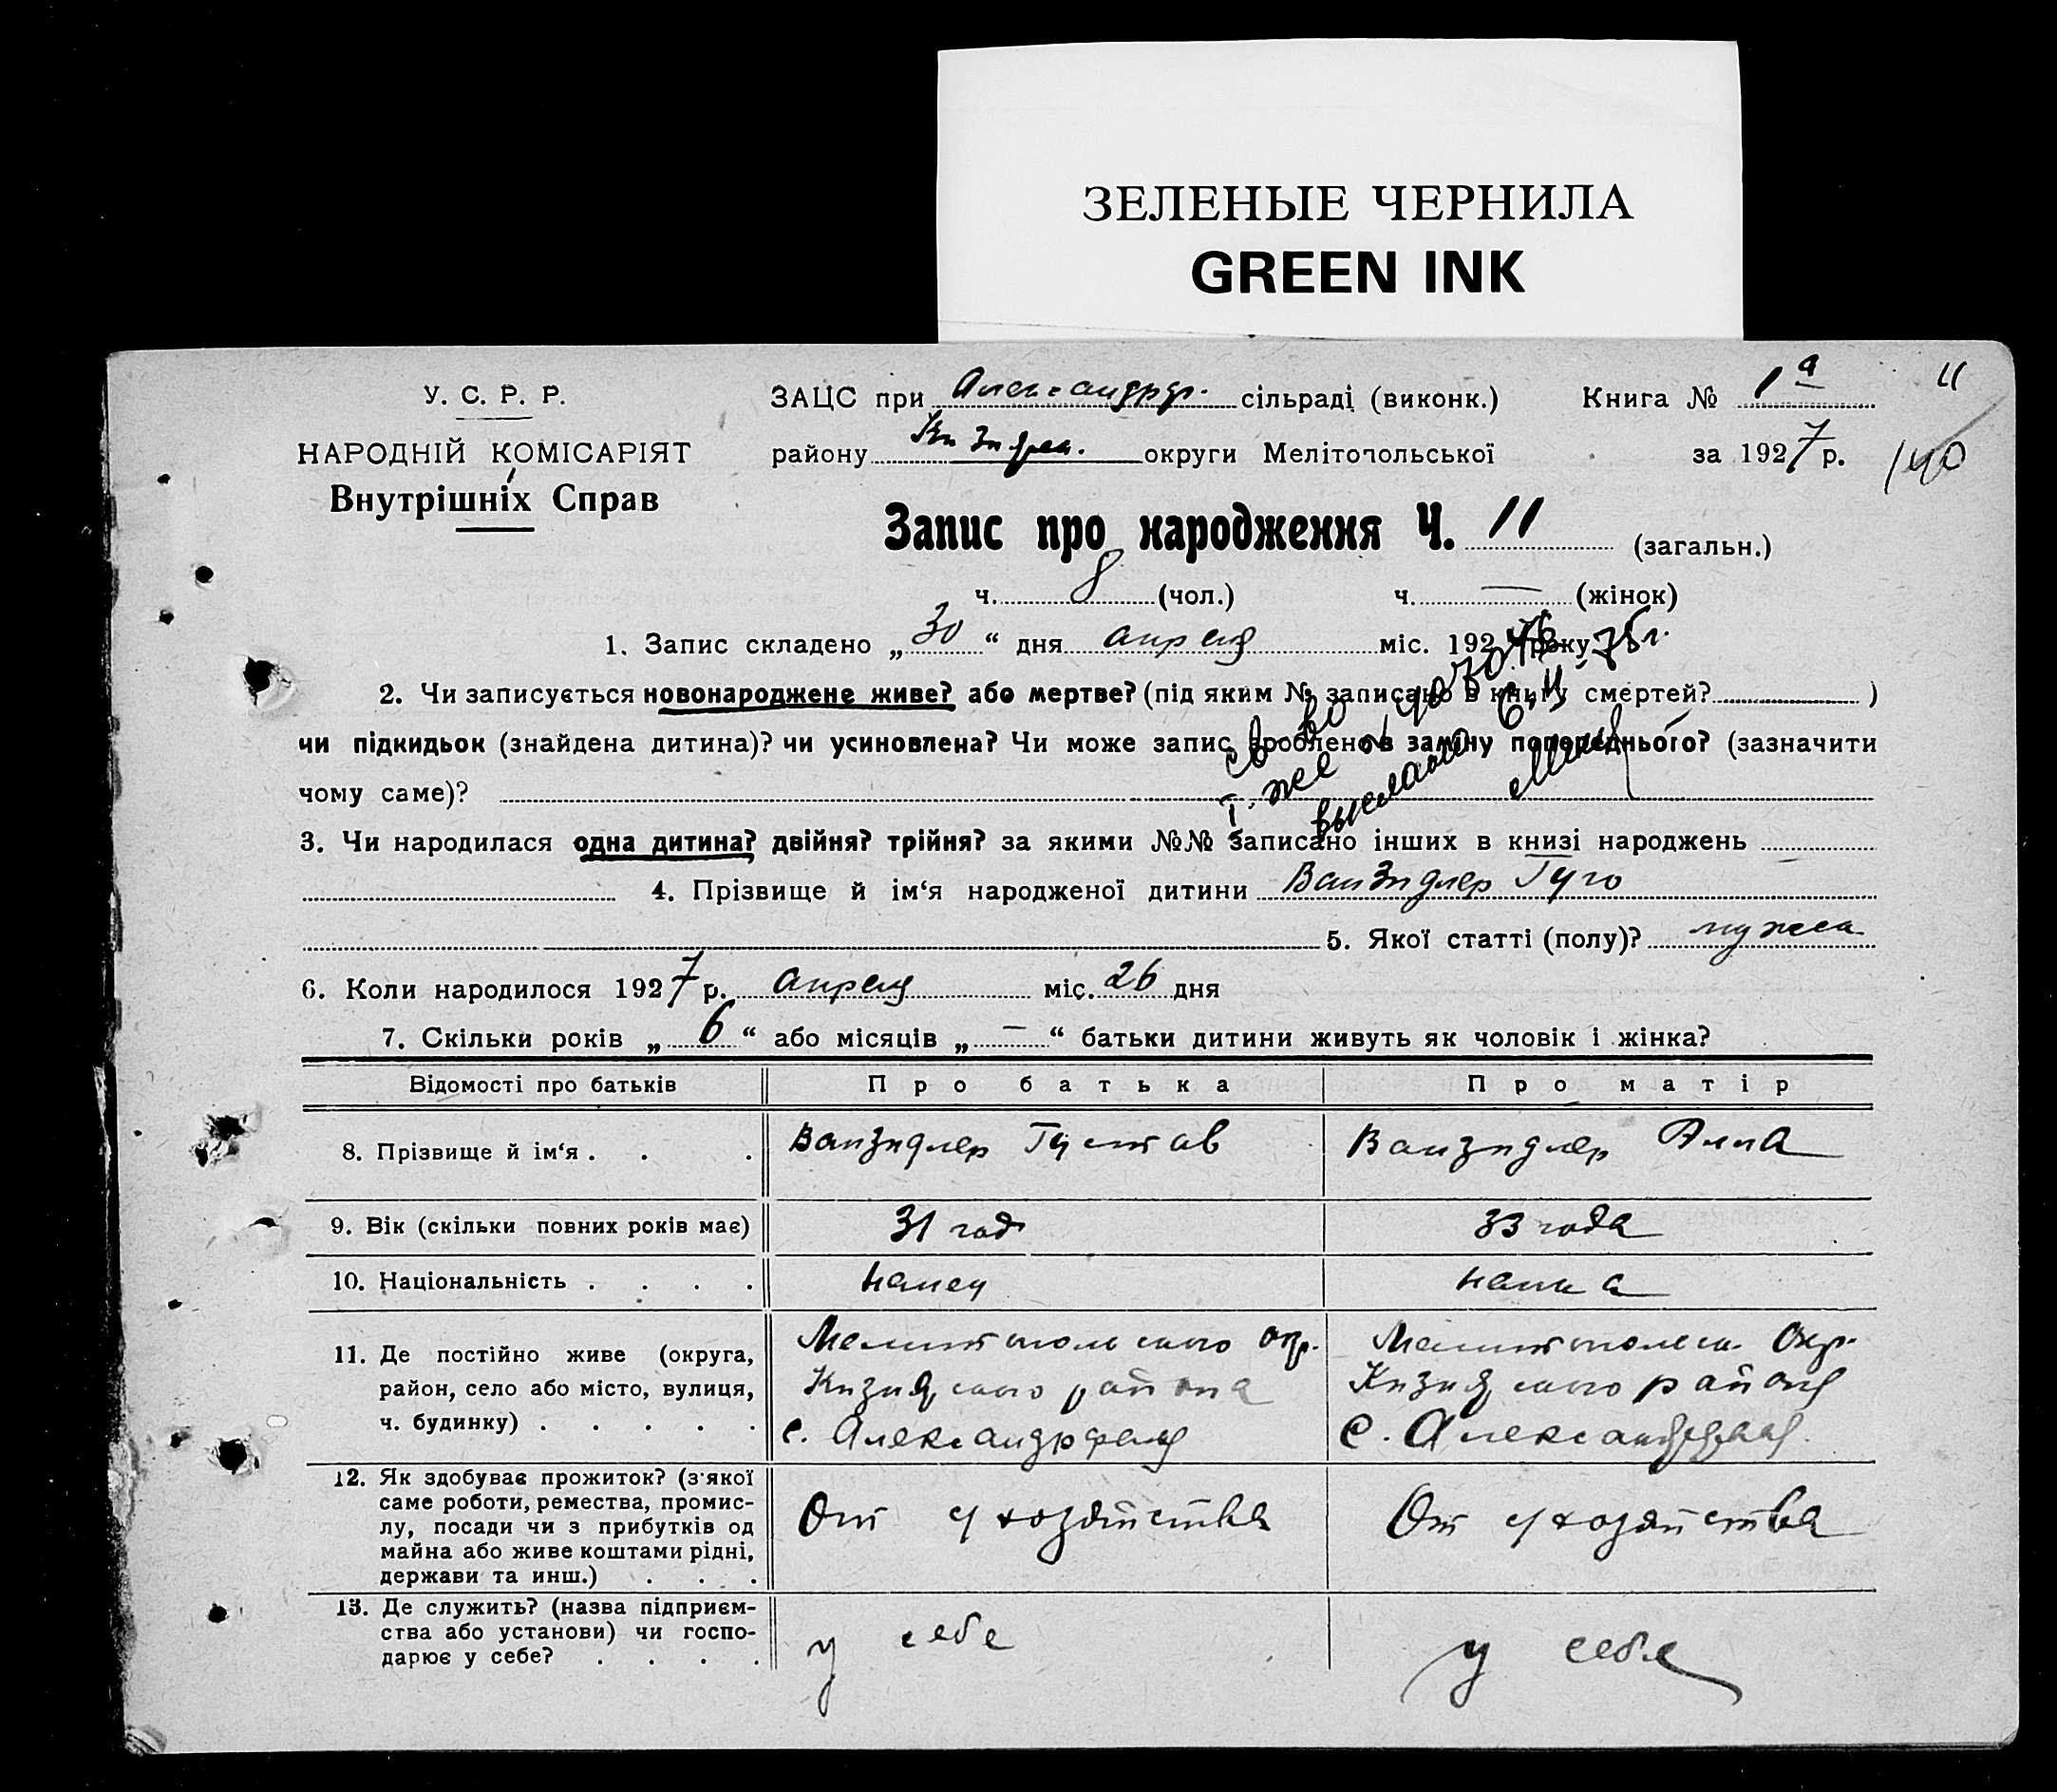 ЗЕЛЕНЫЕ ЧЕРНИЛА
GREEN INK
11
У. С. Р. Р.
ЗАЦС при Александрф. сільраді (виконк.) Книга № 1а
НАРОДНІЙ КОМІСАРІЯТ
району округи Мелітопольської за 1927 р. 140
Внутрішніх Справ
Запис про народження Ч. 11 (загальн.)
ч. 8 (чол.) ч. — (жінок)
1. Запис складено „30“ дня апреля міс. 192 року
2. Чи записується новонароджене живе? або мертве? (під яким № записано в книгу смертей? )
чи підкидьок (знайдена дитина)? чи усиновлена? Чи може запис зроблено в заміну попереднього? (зазначити
чому саме)?
св-во
выслано 6.II.75г.
3. Чи народилася одна дитина? двійня? трійня? за якими №№ записано інших в книзі народжень
4. Прізвище й ім‘я народженої дитини Ванзидлер Гуго
5. Якої статті (полу)? мужск
6. Коли народилося 1927 р. апреля міс. 26 дня
7. Скільки років „6“ або місяців „—“ батьки дитини живуть як чоловік і жінка?
Відомості про батьків Про батька Про матір
8. Прізвище й ім‘я . . . Ванзидлер Густав Ванзидлер Анна
9. Вік (скільки повних років має) 31 год 33 года
10. Національність . . . . немец немка
11. Де постійно живе (округа, район, село або місто, вулиця, ч. будинку) . . . . .
Мелитопольского окр. Мелитопольск. Окр.
Кизиярского района Кизиярского района
с. Александрфельд с. Александрфельд
12. Як здобуває прожиток? (з‘якої
саме роботи, ремества, промис-
лу, посади чи з прибутків од
майна або живе коштами рідні,
держави та инш.) . . .
От с/хозяйства От с/хозяйства
13. Де служить? (назва підприєм-
ства або установи) чи госпо-
дарює у себе? . . . .
у себе у себе